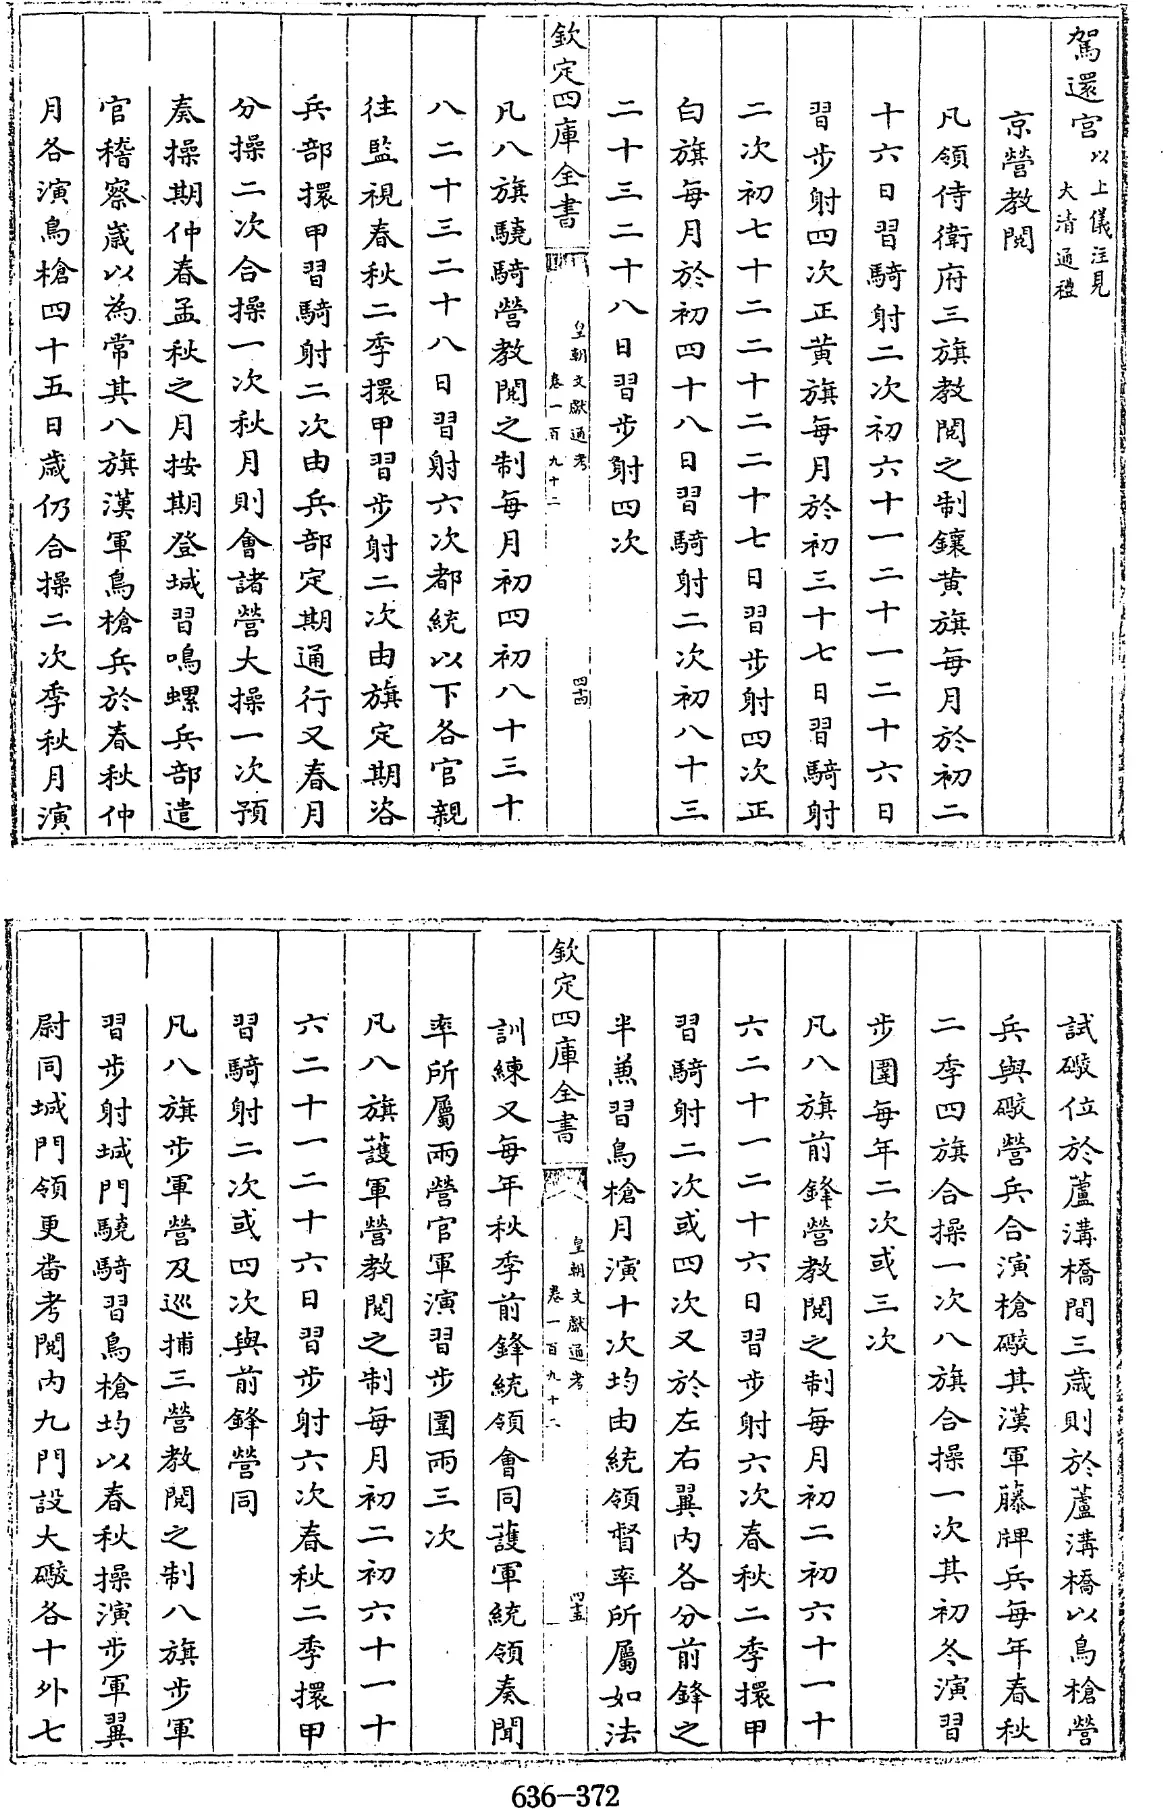 駕還宮以上儀注見大清通禮
京營教閱
凡領侍衛府三旗教閱之制鑲黃旗每月於初二
十六日習騎射二次初六十一二十一二十六日
習步射四次正黃旗每月於初三十七日習騎射
二次初七十二二十二二十七日習步射四次正
白旗每月於初四十八日習騎射二次初八十三
二十三二十八日習步射四次
欽定四庫全書
皇朝文獻通考
卷一百九十二
四十四
凡八旗驍騎營教閱之制每月初四初八十三十
八二十三二十八日習射六次都統以下各官親
往監視春秋二季擐甲習步射二次由旗定期洛
兵部擐甲習騎射二次由兵部定期通行又春月
分操二次合操一次秋月則會諸營大操一次預
奏操期仲春孟秋之月按期登城習鳴螺兵部遣
官稽察歲以為常其八旗漢軍鳥槍兵於春秋仲
月各演鳥槍四十五日歲仍合操二次季秋月演
試礮位於蘆溝橋間三歲則於蘆溝橋以鳥槍營
兵與礮營兵合演槍礮其漢軍藤牌兵每年春秋
二季四旗合操一次八旗合操一次其初冬演習
步圍每年二次或三次
凡八旗前鋒營教閱之制每月初二初六十一十
六二十一二十六日習步射六次春秋二季擐甲
習騎射二次或四次又於左右翼內各分前鋒之
半兼習鳥槍月演十次均由統領督率所屬如法
欽定四庫全書
皇朝文獻通考
卷一百九十二
四十五
訓練又每年秋季前鋒統領會同護軍統領奏聞
率所屬兩營官軍演習步圍兩三次
凡八旗護軍營教閱之制每月初二初六十一十
六二十一二十六日習步射六次春秋二季擐甲
習騎射二次或四次與前鋒營同
凡八旗步軍營及巡捕三營教閱之制八旗步軍
習步射城門驍騎習鳥槍均以春秋操演步軍翼
尉同城門領更番考閱內九門設大礮各十外七
636-372